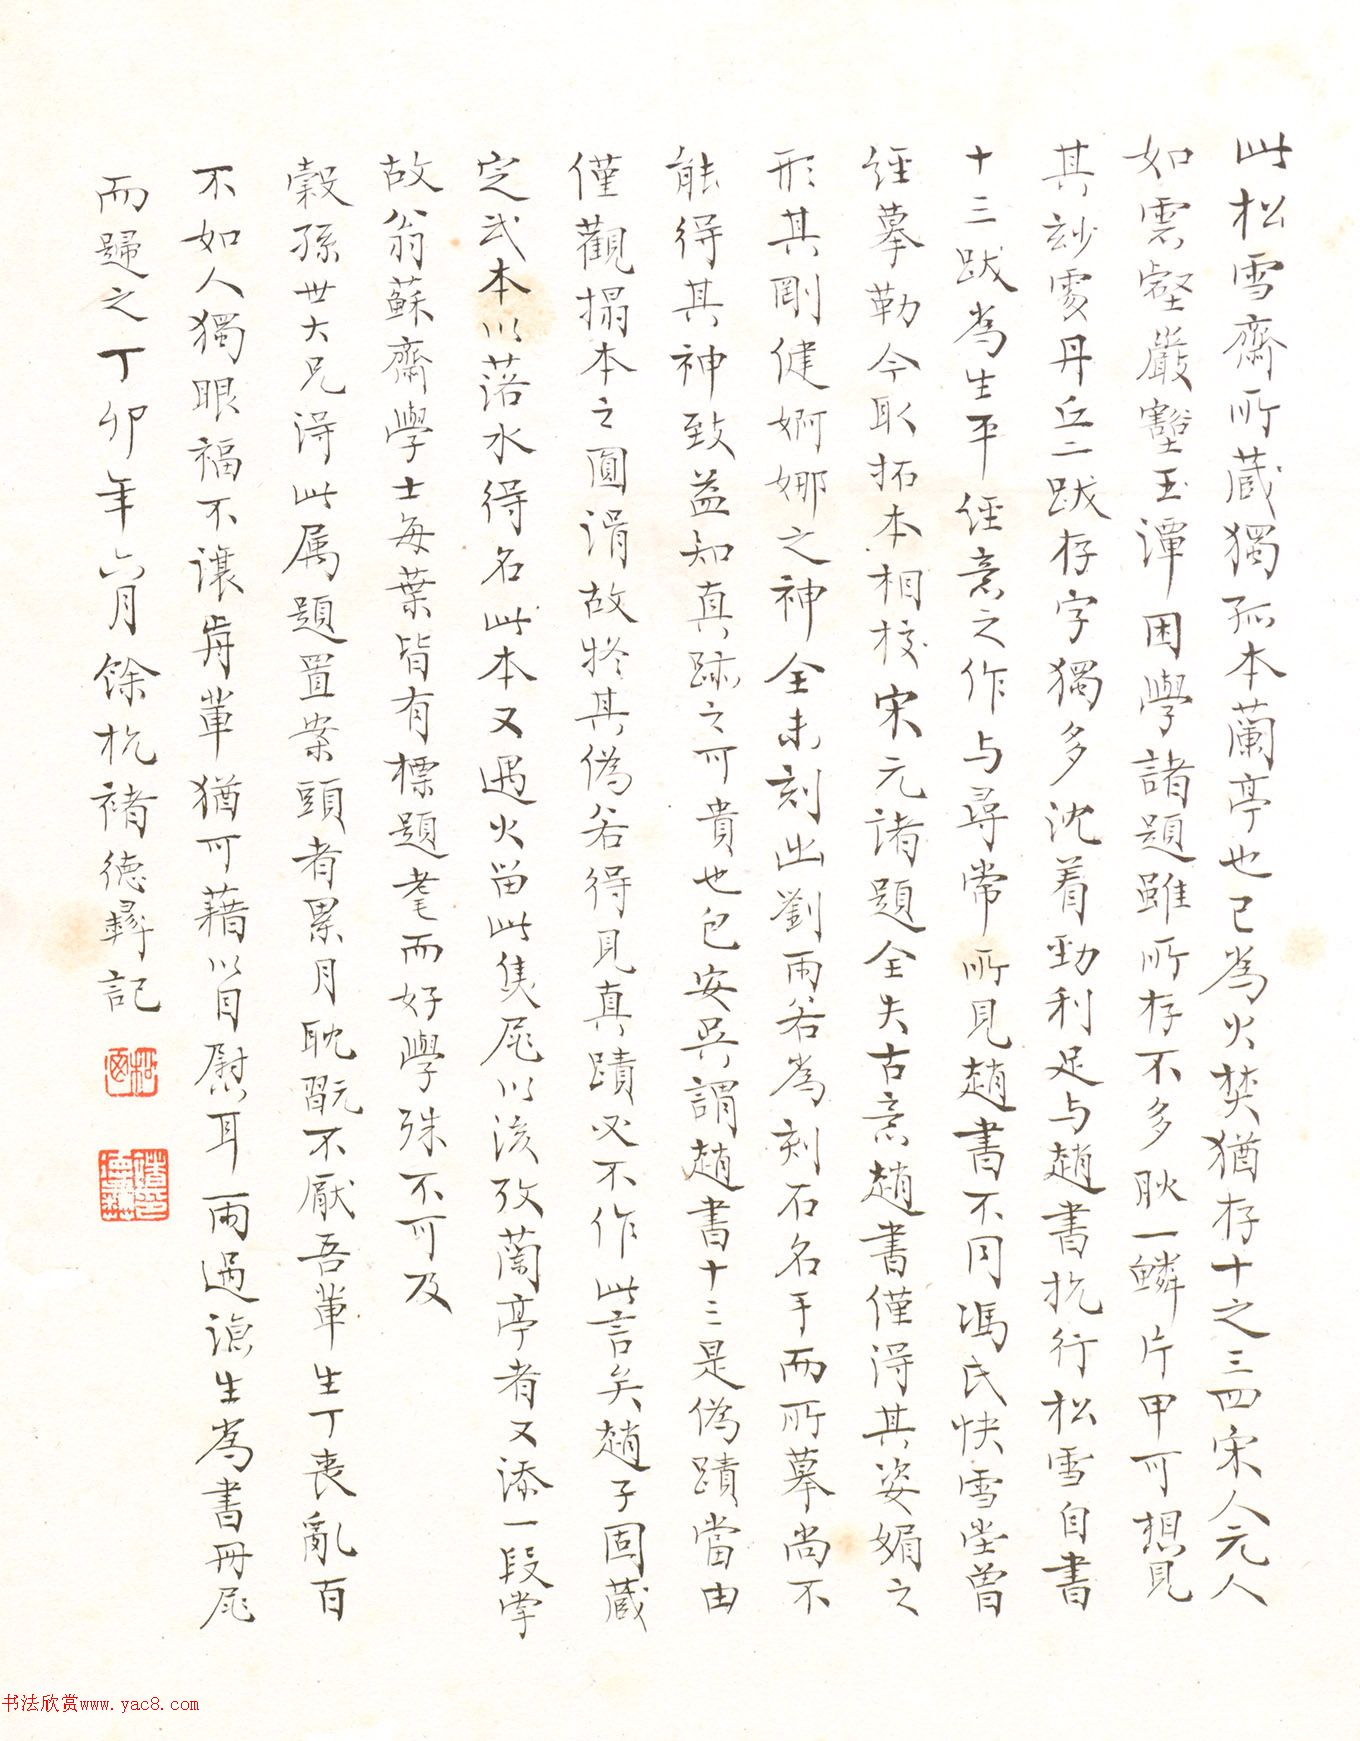 此松雪齋所藏獨孤本蘭亭也已為火焚猶存十之三四宋人元人
如雲壑巖豁玉潭困學諸題雖所存不多耿一鱗片甲可想見
其玅處丹丘二跋存字獨多沈着勁利足与趙書抗行松雪自書
十三跋為生平經意之作与尋常所見趙書不同馮氏快雪堂曾
經摹勒今取拓本相校宋元諸題全失古意趙書僅得其姿媚之
形其剛健婀娜之神全未刻出劉雨若為刻石名手而所摹尚不
能得其神致益知真跡之可貴也包安吳謂趙書十三是偽蹟當由
僅觀搨本之圓滑故疑其偽若得見真蹟必不作此言矣趙子固藏
定武本以落水得名此本又遇火留此焦尾以後攷蘭亭者又添一段掌
故翁蘇齋學士每葉皆有標題耄而好學殊不可及
穀孫世大兄得此属題置案頭者累月耽翫不厭吾輩生丁喪亂百
不如人獨眼福不讓前輩猶可藉以自慰耳雨過涼生為書冊尾
而歸之丁卯年六月餘杭褚德彝記
松窗
褚德彝
书法欣赏www.yac8.com